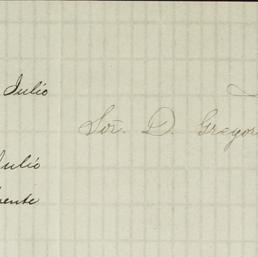 Julio
Sor. D. Gregor
Julio